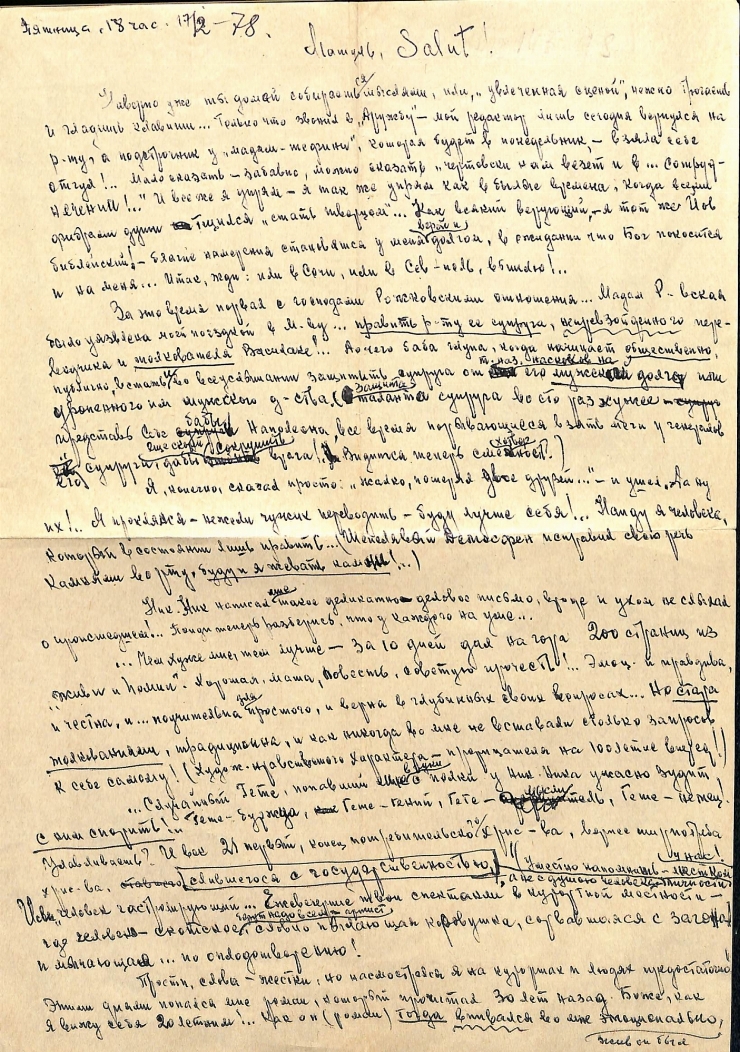 Пятница, 18 час. 17/2-78.
Матуль, Salut!
Наверно уже ты домой собираешься мыслями, или, "увлеченная сценой", нежно трогаешь
и гладишь клавиши... Только что звонил в "Дружбу" – мой редактор лишь сегодня вернулся на
р-ту, а подстрочник у "мадам-жефини", которая будет в понедельник, – взяла себе
отгул!.. Мало сказать – забавно, можно сказать "чертовски нам везет и в... сотруд-
нечении!.." И все же я упрям – я так же упрям как в былые времена, когда всеми
фибрами души тщился "стать творцом"... Как всякий верующий, – я тот же Иов
библейский! – благие намерения становятся у меня верой и долгом, в ожидании что Бог покосится
и на меня... Итак, жди: или в Сочи, или в Сев-поль, вышлю!..
За это время порвал с господами Рожковскими отношения... Мадам Р-вская
было уязвлена моей поездкой в М-ву... править р-ту ее супруга, непревзойденного пере-
водчика и толкователя Василаке!.. До чего баба глупа, когда начинает общественно,
публично, вставать во всеуслышание защитить супруга от т. наз. наскоков на его мужской долг или
уроненного им мужского д-ства (защита таланта супруга во сто раз хуже
представь себе бабу Наполеона, все время порывающуюся взять меч у генералов
его супруга, дабы еще скорей сокрушить врага! Видится теперь схожесть.)
Я, конечно, сказал просто: "жалко, потерял двое друзей..." – и ушел. А ну
их!.. Я проклялся – нежели чужих переводить – буду лучше себя!.. Найду я человека,
который в состоянии лишь править... (Шепелявый Демосфен исправил свою речь
камнями во рту, буду и я жевать камни!..)
Ник. Ник написал мне такое деликатное деловое письмо, вроде и ухом не слыхал
о происшедшем!.. Поди теперь разберись, что у каждого на уме...
... Чем хуже мне, тем лучше – за 10 дней дал на гора 200 страниц из
"Живи и помни". Хорошая, маша, повесть, советую прочесть!.. Эмоц. и правдива,
и честна, и... поучительна для простого, и верна в глубинных своих вопросах... Но стара
толкованиями, традиционна, и как никогда во мне не вставали столько запросов
к себе самому! (Худож-нравственного характера – прорицателя на 100летие вперед!)
... Случайный Гете, попавший в руки с полки у Ник. Ника ужасно зудит,
с ним спорить!.. Гете-буржуа, Гете-гений, Гете-мыслитель, Гете-немец!
Улавливаешь? И век 21 первый, конец потребительского хрис-ва, вернее ширпотреба
хрис-ва, слившегося с государственностью, (Уместно напомнить – местной у нас!
а не с душою человека-личности
Исм "человек гастролирующий... Ежевечерне твои спектакли в курортной местности –
где человеко-скотское, словно пылающая коровушка, сорвавшаяся с загона
и мычащая... по оплодотворению!
Прости, слова – жестки, но насмотрелся я на курортах и людях предостаточно
Этими днями попался мне роман, который прочитал 30 лет назад. Боже, как
я вижу себя 20летним!.. Как он (роман) тогда впивался во мне эмоционально,
Жив он был